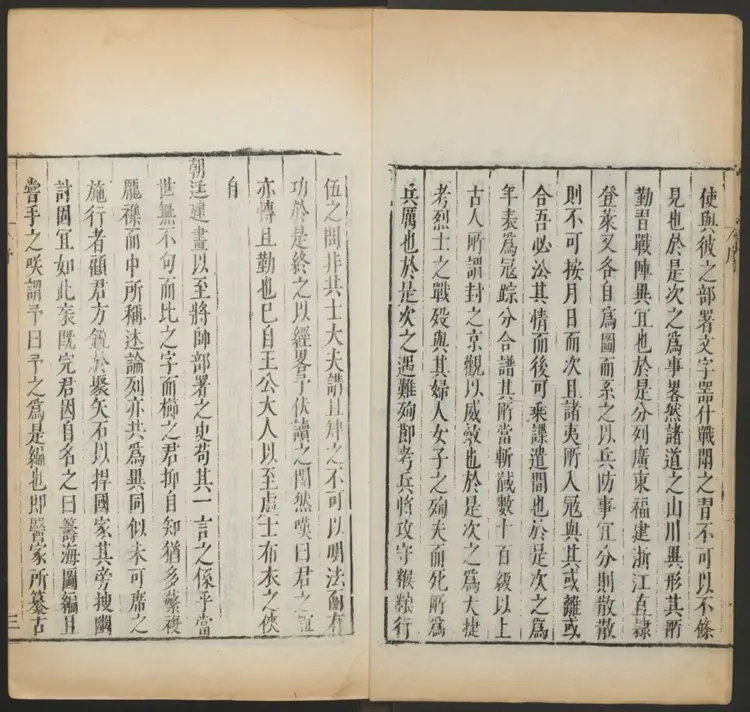 使與彼之部署文字器什戰鬪之習不可以不條
見也於是次之為事畧然諸道之山川異形其所
勤習戰陣異宜也於是分列廣東福建浙江直隷
登萊又各自為圖而系之以兵防事宜分則散散
則不可按月日而次且諸夷所入冦與其或離或
合吾必公其情而後可乘諜遣間也於是次之為
年表為冦踪分合譜其所當斬馘數十百級以上
古人所謂封之京觀以威敵也於是次之為大捷
考烈士之戰殁與其婦人女子之殉夫而死所為
兵厲也於是次之遇難殉節考兵將攻守糇粮行
伍之間非共士大夫講且肄之不可以明法而有
功於是終之以經畧予伏讀之閒然嘆曰君之誼
亦慱且勤也巳自王公大人以至處士布衣之俠
自
朝廷建畫以至將帥部署之史苟其一言之係乎當
世無不句而比之字而櫛之君抑自知猶多蘩複
龎襍而中所稱述論列亦共為異同似未可席之
施行者顧君方銳於聚矢石以捍國家其旁搜幽
討固宜如此衮既完君因自名之曰籌海圖編且
嘗手之咲謂予曰予之為是編也即醫家所纂古
三